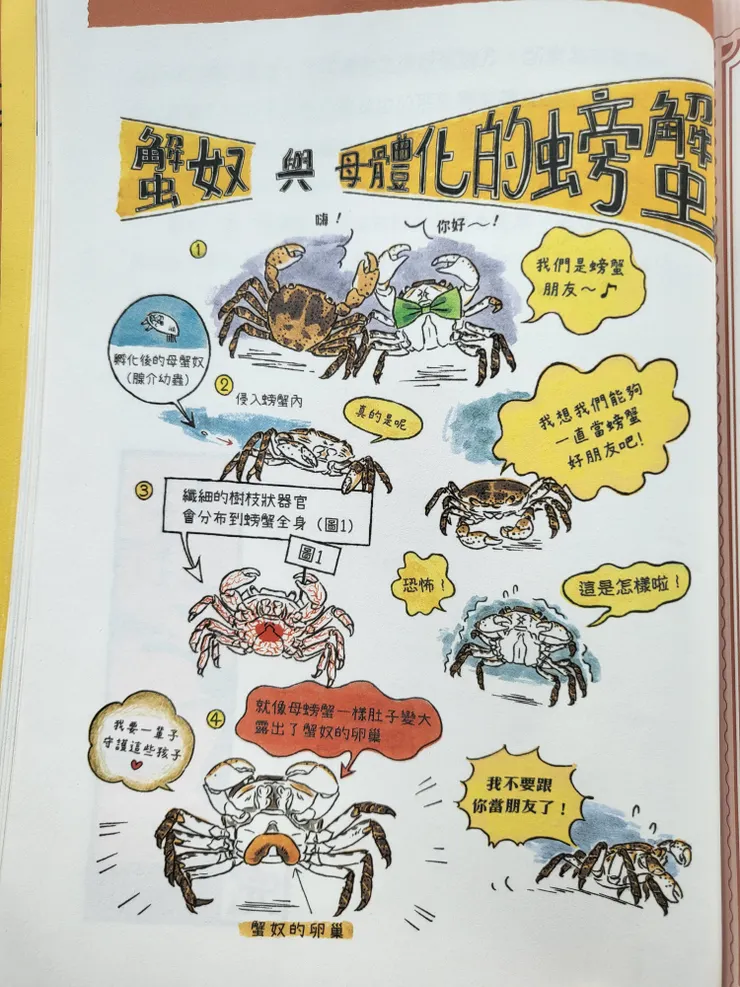 蟹奴 與 母體化的螃蟹
嗨！
你好～！
①
我們是螃蟹
朋友～♪
孵化後的母蟹奴
（腺介幼蟲）
②
侵入螃蟹內
真的是呢
我想我們能夠
一直當螃蟹
好朋友吧！
③
纖細的樹枝狀器官
會分布到螃蟹全身（圖1）
圖1
恐怖！
這是怎樣啦！
④
就像母螃蟹一樣肚子變大
露出了蟹奴的卵巢
我要一輩子
守護這些孩子
我不要跟
你當朋友了！
蟹奴的卵巢